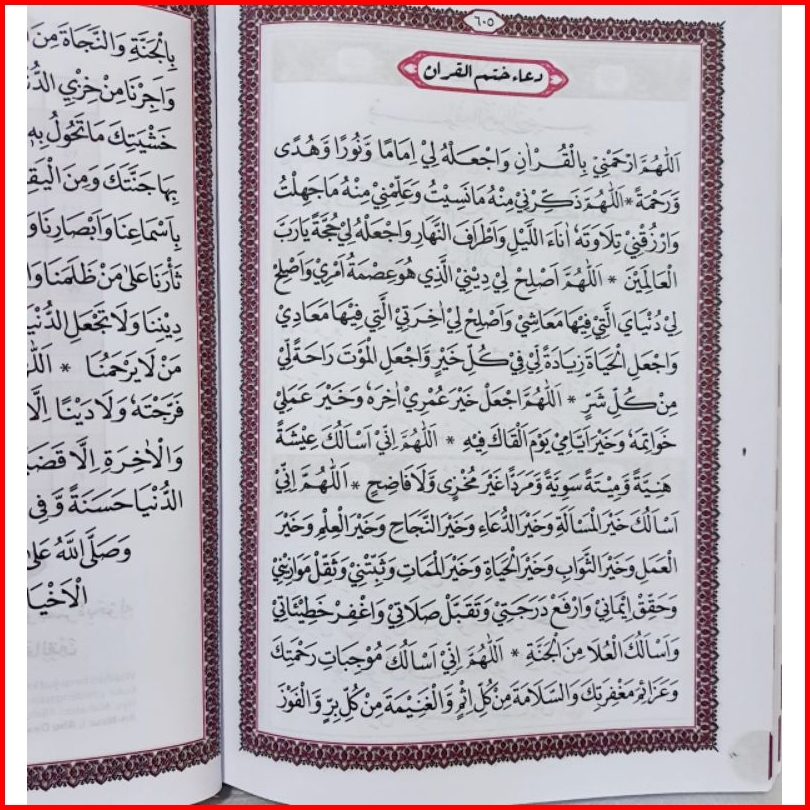 ٦٠٥
دعاء ختم القران
اَللّٰهُمَّ ارْحَمْنِيْ بِالْقُرْاٰنِ وَاجْعَلْهُ لِيْ اِمَامًا وَّنُوْرًا وَّهُدًى
وَّرَحْمَةً * اَللّٰهُمَّ ذَكِّرْنِيْ مِنْهُ مَا نَسِيْتُ وَعَلِّمْنِيْ مِنْهُ مَا جَهِلْتُ
وَارْزُقْنِيْ تِلَاوَتَهٗ اٰنَاءَ اللَّيْلِ وَاَطْرَافَ النَّهَارِ وَاجْعَلْهُ لِيْ حُجَّةً يَارَبَّ
الْعَالَمِيْنَ * اَللّٰهُمَّ اَصْلِحْ لِيْ دِيْنِيْ الَّذِي هُوَ عِصْمَةُ اَمْرِيْ وَاَصْلِحْ
لِيْ دُنْيَايَ الَّتِيْ فِيْهَا مَعَاشِيْ وَاَصْلِحْ لِيْ اٰخِرَتِيْ الَّتِي فِيْهَا مَعَادِيْ
وَاجْعَلِ الْحَيَاةَ زِيَادَةً لِّيْ فِيْ كُلِّ خَيْرٍ وَّاجْعَلِ الْمَوْتَ رَاحَةً لِّيْ
مِنْ كُلِّ شَرٍّ * اَللّٰهُمَّ اجْعَلْ خَيْرَ عُمْرِيْ اٰخِرَهٗ وَخَيْرَ عَمَلِيْ
خَوَاتِمَهٗ وَخَيْرَ اَيَّامِيْ يَوْمَ اَلْقَاكَ فِيْهِ * اَللّٰهُمَّ اِنِّيْ اَسْاَلُكَ عِيْشَةً
هَنِيَّةً وَّمِيْتَةً سَوِيَّةً وَّمَرَدًّا غَيْرَ مُخْزِى وَّلَا فَاضِحٍ * اَللّٰهُمَّ اِنِّيْ
اَسْاَلُكَ خَيْرَ الْمَسْاَلَةِ وَخَيْرَ الدُّعَاءِ وَخَيْرَ النَّجَاحِ وَخَيْرَ الْعِلْمِ وَخَيْرَ
الْعَمَلِ وَخَيْرَ الثَّوَابِ وَخَيْرَ الْحَيَاةِ وَخَيْرَ الْمَمَاتِ وَثَبِّتْنِيْ وَثَقِّلْ مَوَازِيْنِيْ
وَحَقِّقْ اِيْمَانِيْ وَارْفَعْ دَرَجَتِيْ وَتَقَبَّلْ صَلَاتِيْ وَاغْفِرْ خَطِيْئَاتِيْ
وَاَسْاَلُكَ الْعُلَا مِنَ الْجَنَّةِ * اَللّٰهُمَّ اِنِّيْ اَسْاَلُكَ مُوْجِبَاتِ رَحْمَتِكَ
وَعَزَائِمَ مَغْفِرَتِكَ وَالسَّلَامَةَ مِنْ كُلِّ اِثْمٍ وَّالْغَنِيْمَةَ مِنْ كُلِّ بِرٍّ وَّالْفَوْزَ
بِالْجَنَّةِ وَالنَّجَاةَ مِنَ
وَاَجِرْنَا مِنْ خِزْيِ
خَشْيَتِكَ مَا تَحُوْلُ بِهٖ
بِهَا جَنَّتَكَ وَمِنَ
بِاَسْمَاعِنَا وَاَبْصَارِنَا
ثَأْرَنَا عَلٰى مَنْ ظَلَمَنَا
دِيْنِنَا وَلَا تَجْعَلِ الدُّنْيَا
مَنْ لَا يَرْحَمُنَا *
فَرَّجْتَهٗ وَلَا دَيْنًا
وَالْاٰخِرَةِ اِلَّا
الدُّنْيَا حَسَنَةً وَّفِى
وَصَلَّى اللّٰهُ